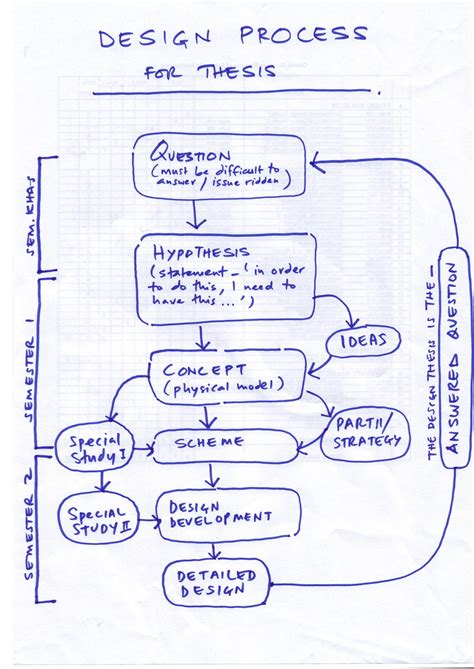 DESIGN PROCESS
FOR THESIS
QUESTION
(must be difficult to
answer / issue ridden)
SEM. KHAS
HYPOTHESIS
(statement – 'in order
to do this, I need to
have this ...')
IDEAS
SEMESTER 1
CONCEPT
(physical model)
PARTII/
STRATEGY
Special
Study I
SCHEME
SEMESTER 2
Special
STUDY II
DESIGN
DEVELOPMENT
DETAILED
DESIGN
THE DESIGN THESIS IS THE –
ANSWERED QUESTION